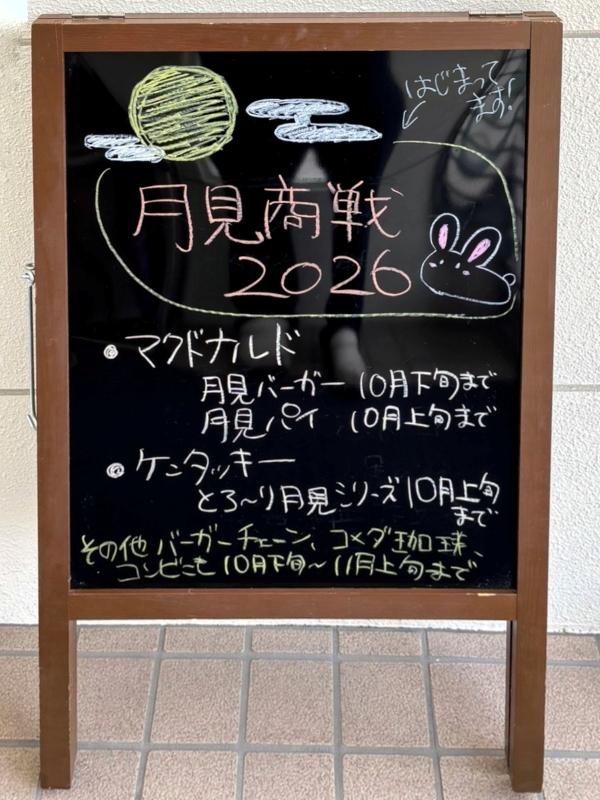 はじまって
ます!
月見商戦
2026
マクドナルド
月見バーガー 10月下旬まで
月見パイ 10月上旬まで
ケンタッキー
とろ〜り月見シリーズ 10月上旬
まで
その他 バーガーチェーン、コメダ珈琲、
コンビニも 10月下旬〜11月上旬まで